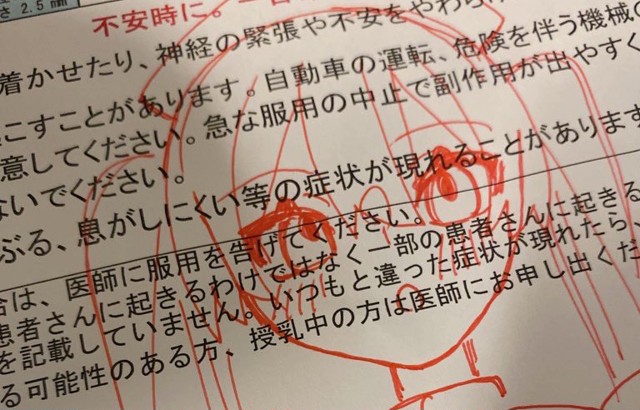 さ 2.5 mm
不安時に。一
着かせたり、神経の緊張や不安をやわら
こすことがあります。自動車の運転、危険を伴う機械の
意してください。急な服用の中止で副作用が出やすく
ないでください。
ぶる、息がしにくい等の症状が現れることがあります
合は、医師に服用を告げてください。
患者さんに起きるわけではなく一部の患者さんに起きる
を記載していません。いつもと違った症状が現れたら、
る可能性のある方、授乳中の方は医師にお申し出くだ